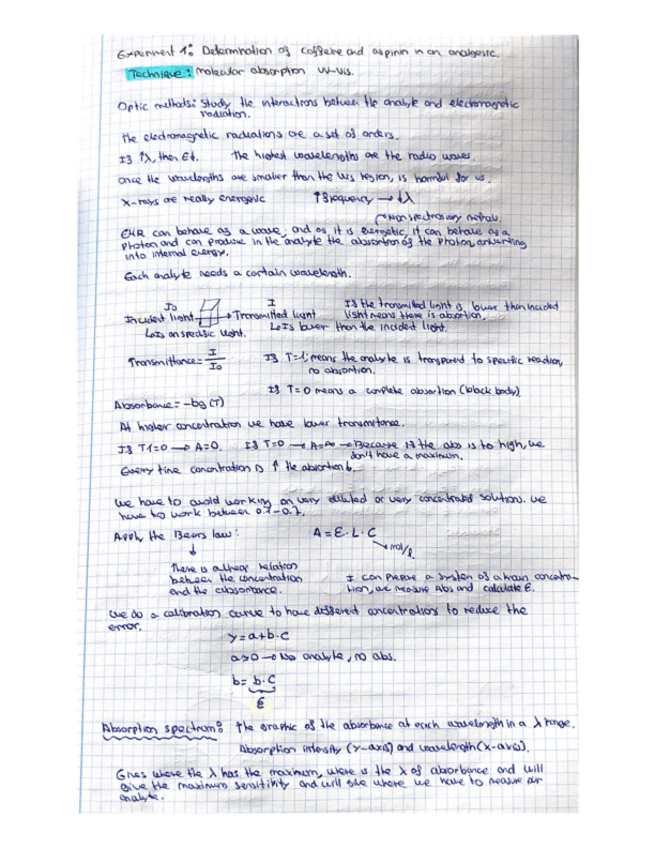 Experiment 1: Determination of caffeine and aspirin in an analgesic.
Technique: molecular absorption UV-vis.
Optic methods: Study the interactions between the analyte and electromagnetic
radiation.
The electromagnetic radiations are a set of orders.
If ↑λ, then E↓. The highest wavelengths are the radio waves.
Once the wavelengths are smaller than the vis region, is harmful for us.
X-rays are really energetic ↑frequency → ↓λ
Non spectroscopy methods.
EMR can behave as a wave, and as it is energetic, it can behave as a
Photon and can produce in the analyte the absorption of the photon, converting
into internal energy.
Each analyte needs a certain wavelength.
I0 I If the transmitted light is lower than incident
Incident light → Transmitted light light means there is absortion.
Is an specific light. Is lower than the incident light.
Transmittance = I/I0 If T=1; means the analyte is transparent to specific reaction,
no absortion.
If T=0 means a complete absortion (black body)
Absorbance = -log (T)
At higher concentration we have lower transmitance.
If T1=0 → A=0. If T=0 → A=∞ → Because if the abs is to high, we
don't have a maximum.
Every time concentration is ↑ the absortion
We have to avoid working on very diluted or very concentrated solutions. We
have to work between 0.7-0.2.
Apply the Beers law: A = Ɛ·L·C
mol/l
There is a linear relation
between the concentration I can prepare a system of a known concentra-
and the absorbance. tion, we measure Abs and calculate Ɛ.
We do a calibration curve to have different concentrations to reduce the
error.
y=a+b·C
a≥0 → No analyte, no abs.
b= b·C
Ɛ
Absorption spectrum: the graphic of the absorbance at each wavelength in a λ range.
Absorption intensity (Y-axis) and wavelength (X-axis).
Gives where the λ has the maximum, where is the λ of absorbance and will
give the maximum sensitivity and will see where we have to measure our
analyte.